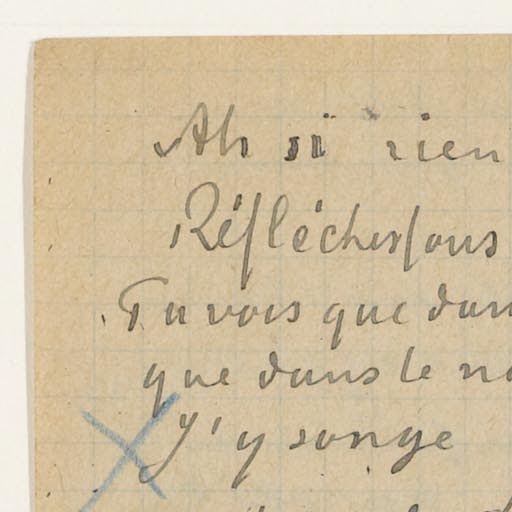 Ah si rien
Réfléchissons
Tu vois que dan
que dans le no
J'y songe